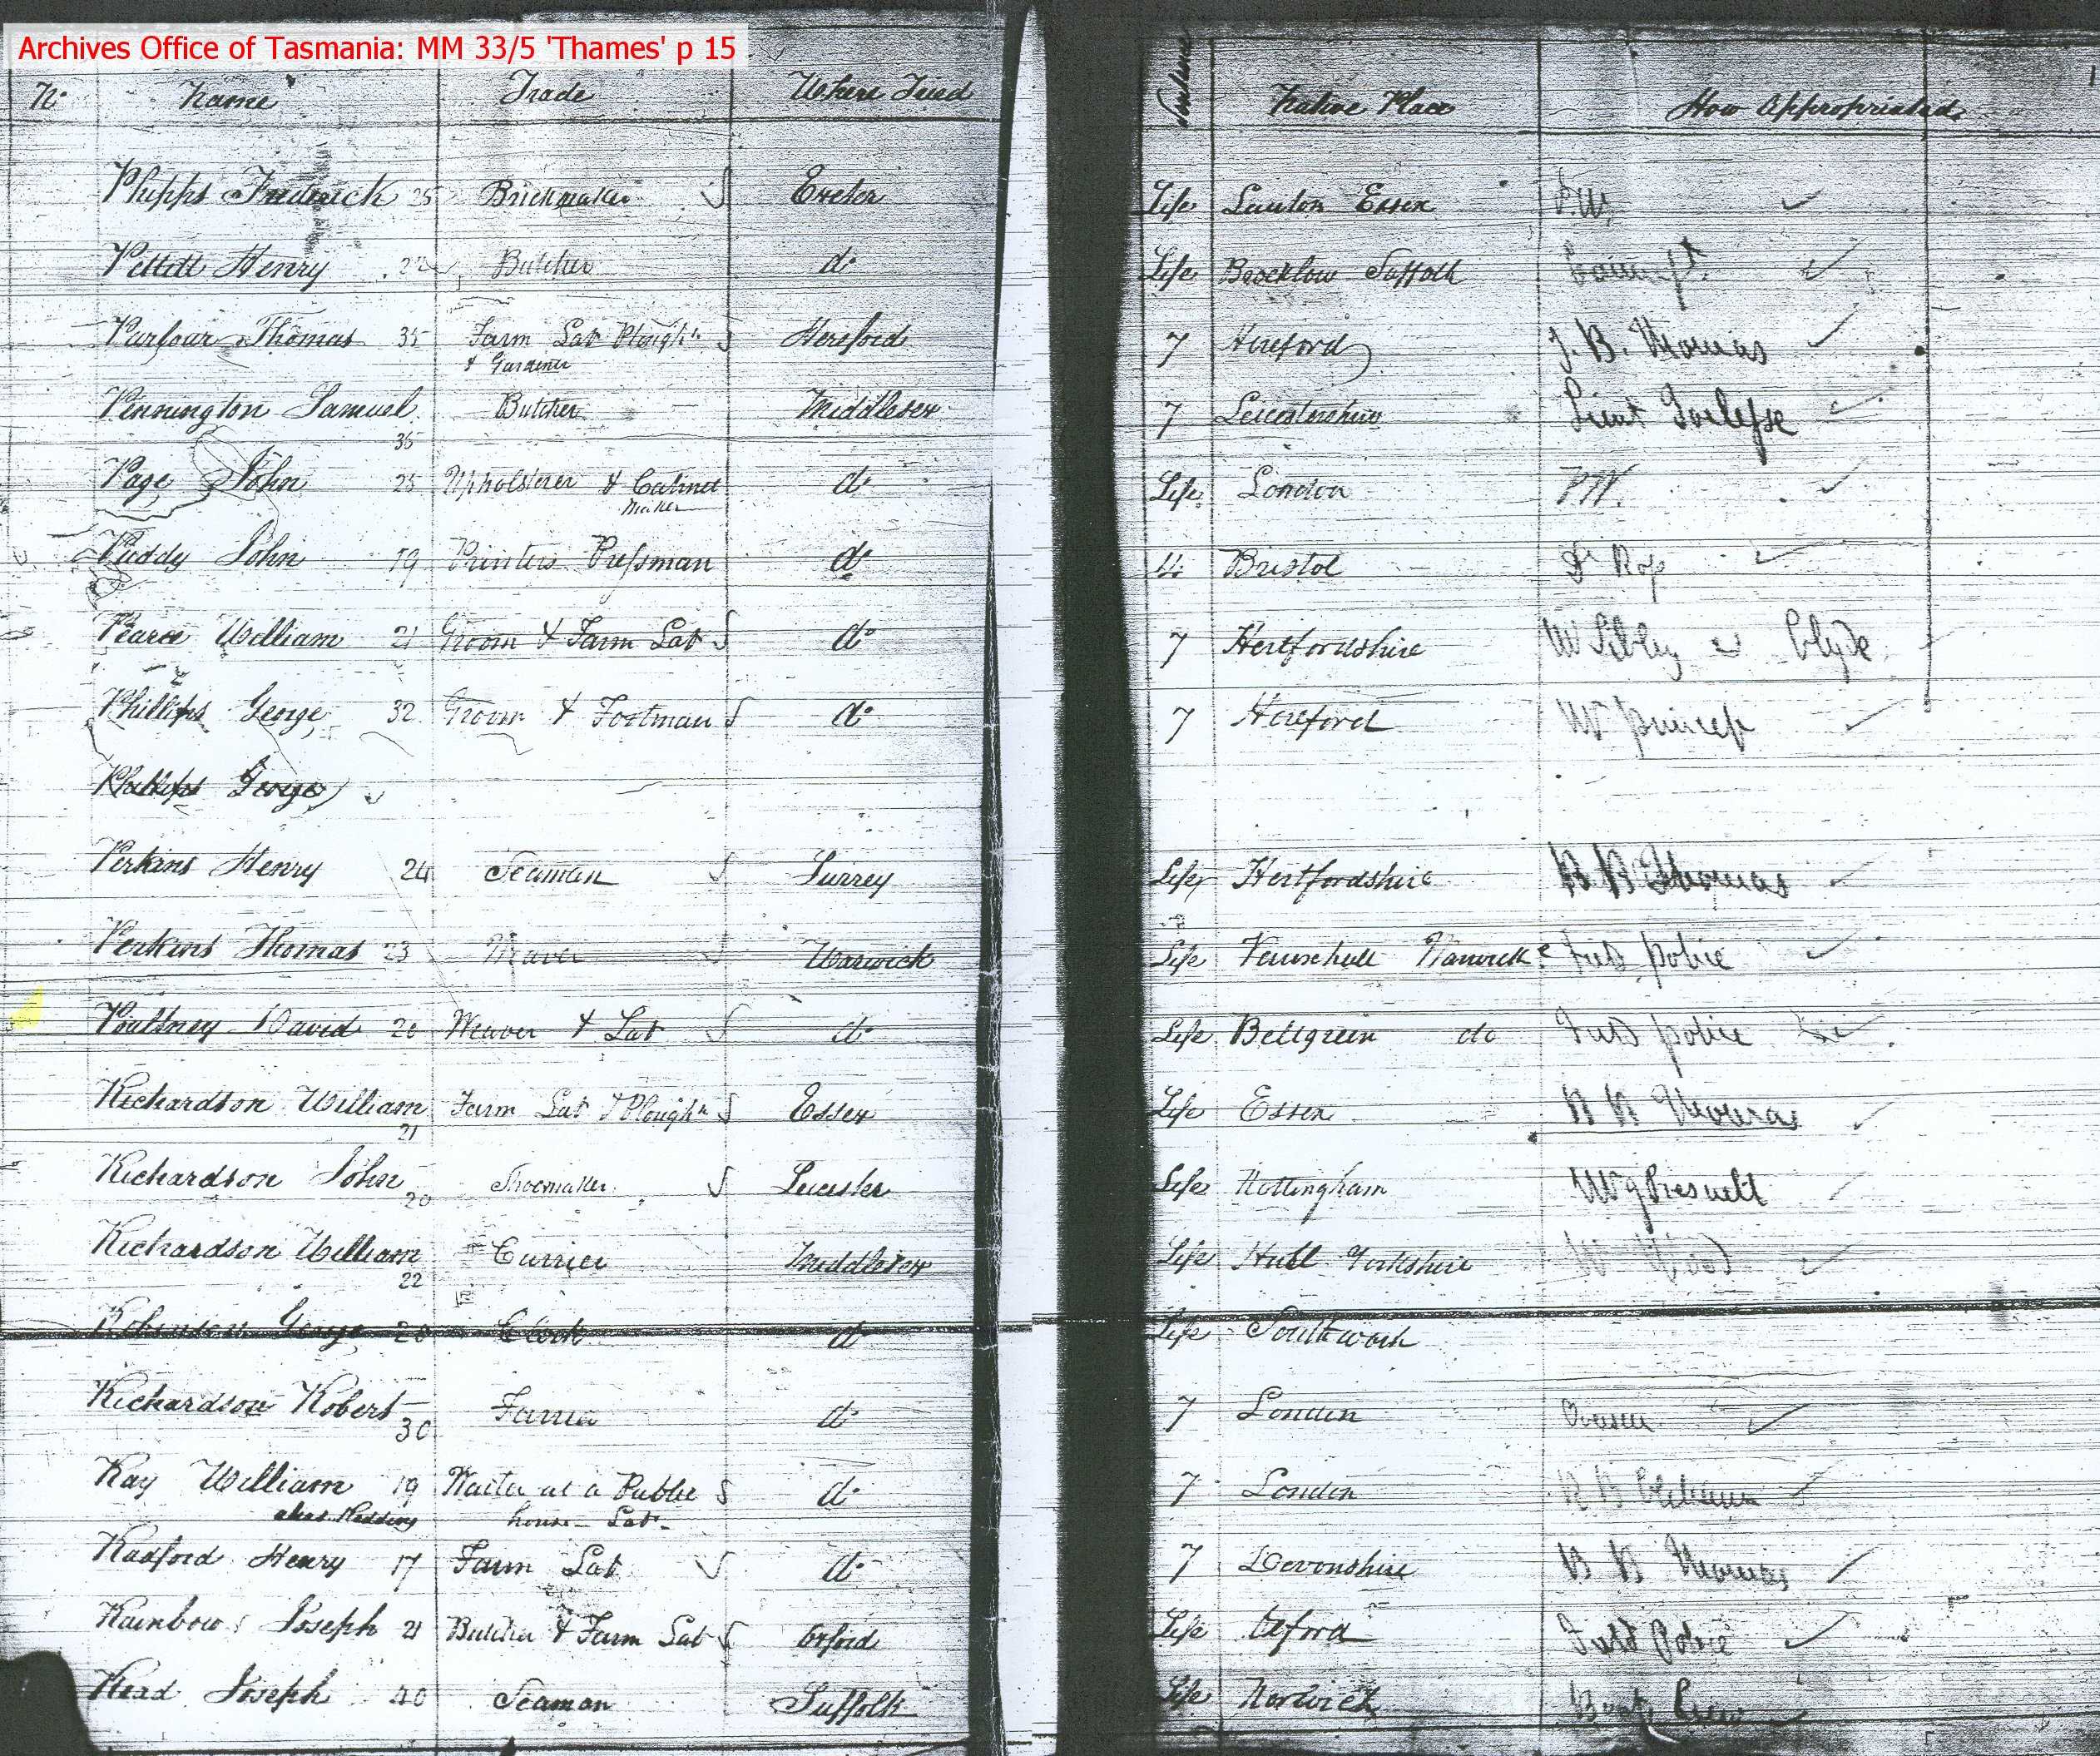 Archives Office of Tasmania: MM 33/5 'Thames' p 15
No. Name Trade Where Tried Sentence Native Place How Appropriated
Phipps Frederick 25 Brickmaker Exeter Life Essex P.W.
Pettitt Henry Butcher do Life Suffolk
Parfour Thomas 35 Farm Lab Ploughn Hereford 7 Hereford J. B. Thomas
& Gardener
Pennington Samuel Butcher Middlesex 7 Leicestershire Lieut
36
Page John 25 Upholsterer & Cabinet do Life London P.W.
Maker
Puddy John 19 Printers Pressman do 14 Bristol Dr Ross
Pearce William 21 Groom & Farm Lab do 7 Hertfordshire Mr Clyde
Phillips George 32 Groom & Footman do 7 Hereford Mr
Phillips George
Perkins Henry 24 Seaman Surrey Life Hertfordshire B B Thomas
Perkins Thomas 23 Weaver Warwick Life Field police
Poultney David 20 Weaver & Lab do Life Bellgreen do Field police
Richardson William Farm Lab & Ploughn Essex Life Essex B B Thomas
21
Richardson John Shoemaker Leicester Life Nottingham Mr
20
Richardson William Currier Middlesex Life Hull Yorkshire Mr Wood
22
Robinson George 20 do Life Southwark
Richardson Robert do 7 London
30
Ray William 19 Waiter at a Public do 7 London
alias Redding house Lab
Radford Henry 17 Farm Lab do 7 Devonshire B B Thomas
Rainbow Joseph 21 Butcher & Farm Lab Oxford Life Oxford Field Police
Read Joseph 40 Seaman Suffolk Life Norwich Boats Crew